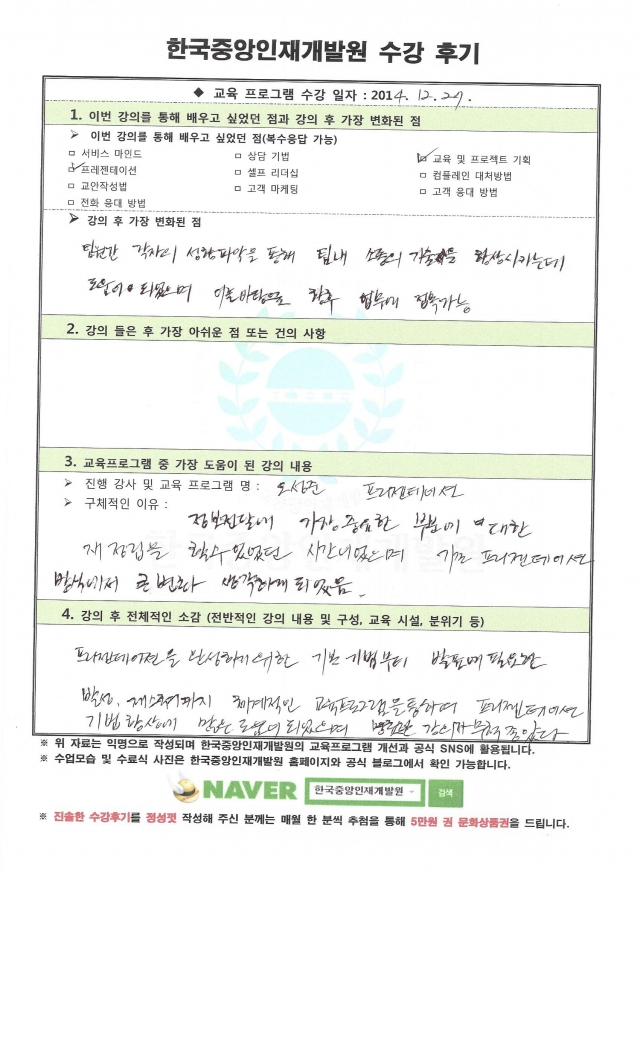 한국중앙인재개발원 수강 후기
◆ 교육 프로그램 수강 일자 : 2014. 12. 27.
1. 이번 강의를 통해 배우고 싶었던 점과 강의 후 가장 변화된 점
➢ 이번 강의를 통해 배우고 싶었던 점(복수응답 가능)
□ 서비스 마인드 □ 상담 기법 ☑ 교육 및 프로젝트 기획
☑ 프레젠테이션 □ 셀프 리더십 □ 컴플레인 대처방법
□ 교안작성법 □ 고객 마케팅 □ 고객 응대 방법
□ 전화 응대 방법
➢ 강의 후 가장 변화된 점
팀원간 각자의 성향파악을 통해 팀내 기술을 향상시키는데
도움이 되었으며 이를 바탕으로 향후 업무에 접목가능
2. 강의 들은 후 가장 아쉬운 점 또는 건의 사항
3. 교육프로그램 중 가장 도움이 된 강의 내용
➢ 진행 강사 및 교육 프로그램 명 : 오성준 프리젠테이션
➢ 구체적인 이유 :
정보전달에 가장 중요한 부분에 대한
재정립을 할수 있었던 시간이었으며 기존 프리젠테이션
방식에서 큰 변화가 생각하게 되었음.
4. 강의 후 전체적인 소감 (전반적인 강의 내용 및 구성, 교육 시설, 분위기 등)
프리젠테이션을 완성하기 위한 기본 기법부터 발표에 필요한
발성, 제스처까지 체계적인 교육프로그램을 통하여 프리젠테이션
기법 향상에 많은 도움이 되었으며 강의가 무척 좋았다.
※ 위 자료는 익명으로 작성되며 한국중앙인재개발원의 교육프로그램 개선과 공식 SNS에 활용됩니다.
※ 수업모습 및 수료식 사진은 한국중앙인재개발원 홈페이지와 공식 블로그에서 확인 가능합니다.
NAVER 한국중앙인재개발원 검색
※ 진솔한 수강후기를 정성껏 작성해 주신 분께는 매월 한 분씩 추첨을 통해 5만원 권 문화상품권을 드립니다.